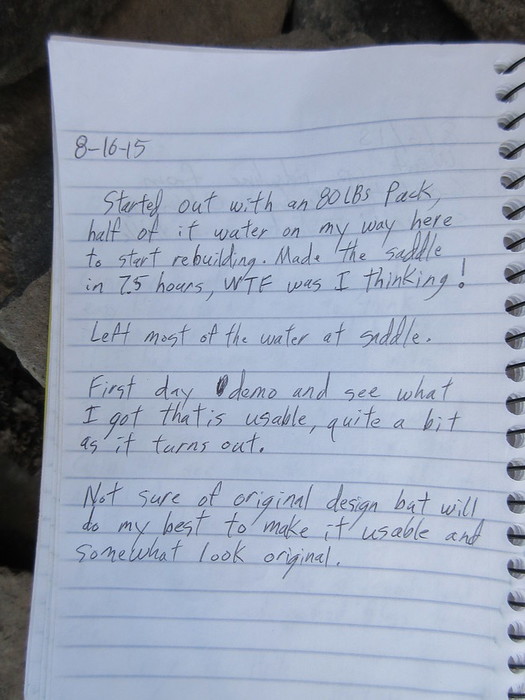 8-16-15
Started out with an 80LBs Pack,
half of it water on my way here
to start rebuilding. Made the saddle
in 7.5 hours, WTF was I thinking!
Left most of the water at saddle.
First day demo and see what
I got that is usable, quite a bit
as it turns out.
Not sure of original design but will
do my best to make it usable and
somewhat look original.